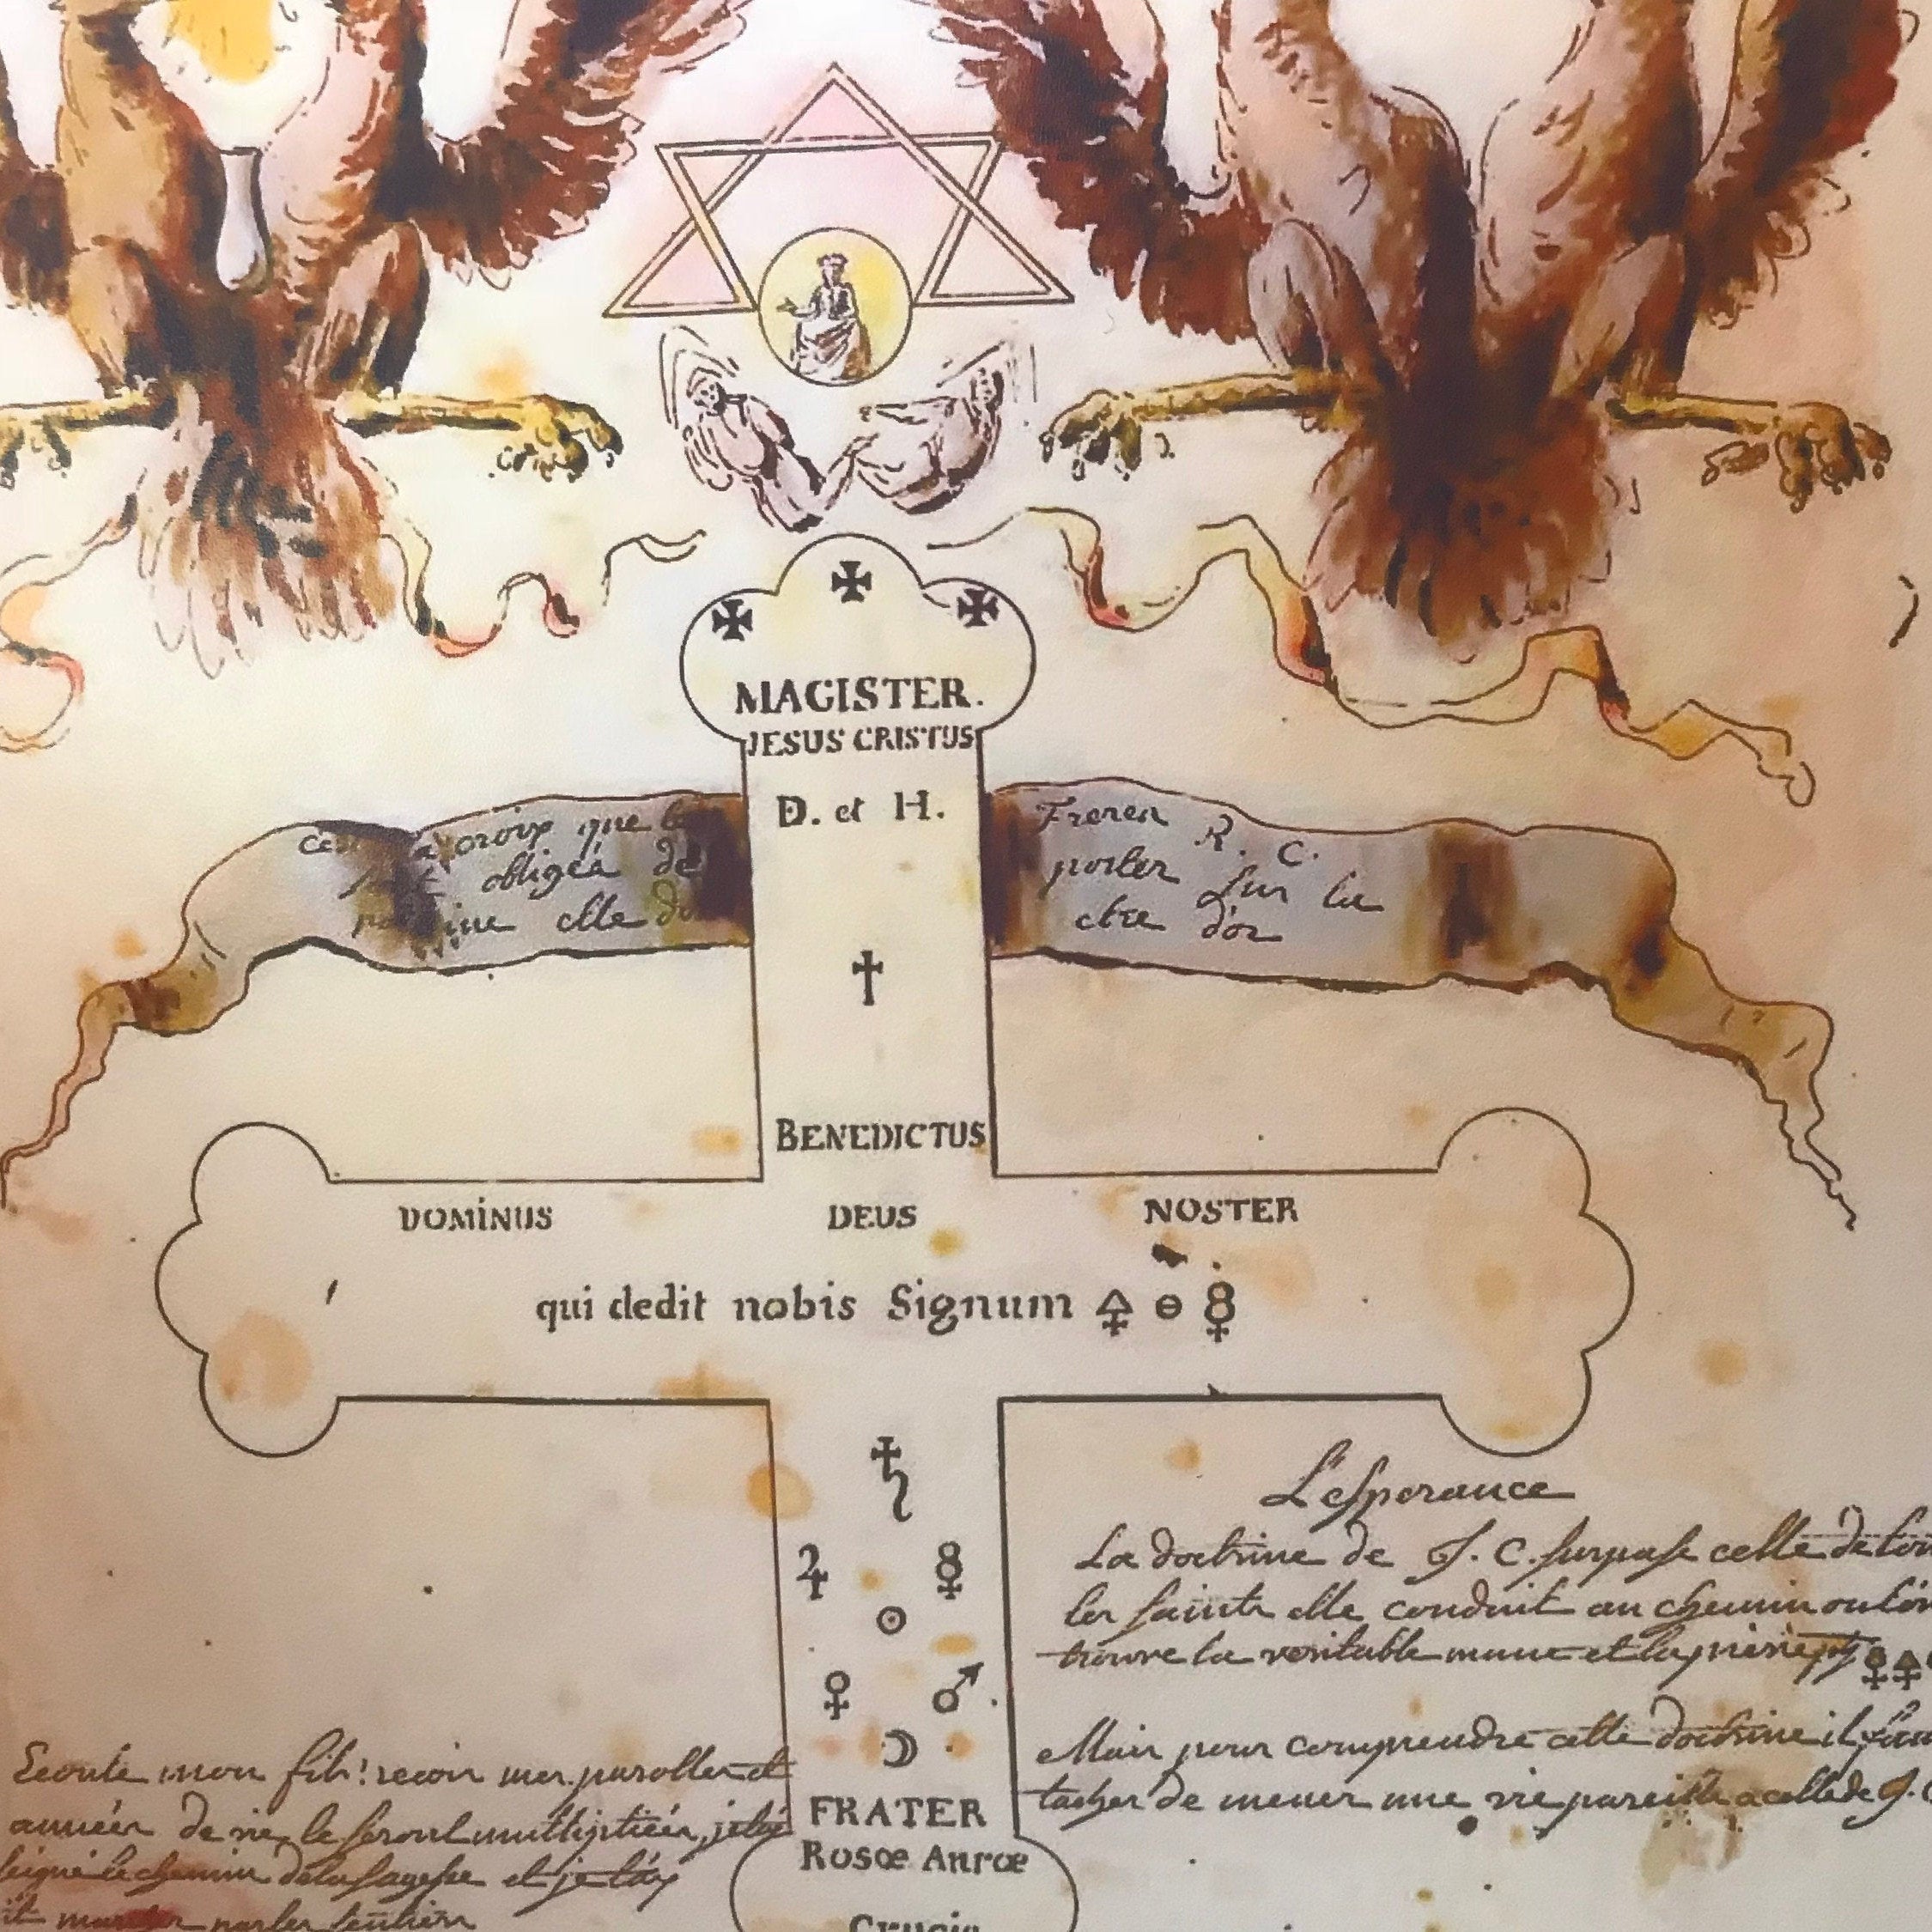 MAGISTER.
JESUS CRISTUS
D. et H.
croix que
obligéa de
elle
Freren R. C.
porter sur la
d'or
BENEDICTUS
DOMINUS DEUS NOSTER
qui dedit nobis Signum 🜍 🜔 ☿
♄
♃ ☿
☉
♀ ♂.
☽
FRATER
Rosœ Auræ
Crucis
L'esperance
La doctrine de J. C. surpasse celle de
les saints elle conduit au chemin ou
trouve la veritable et la
Mais pour comprendre cette doctrine il
tascher de mener une vie pareille a celle de J. C
Ecoute mon fils! recoir mes parolles et
années de vie te seront multipliées,
le chemin de la sagesse et je t'ay